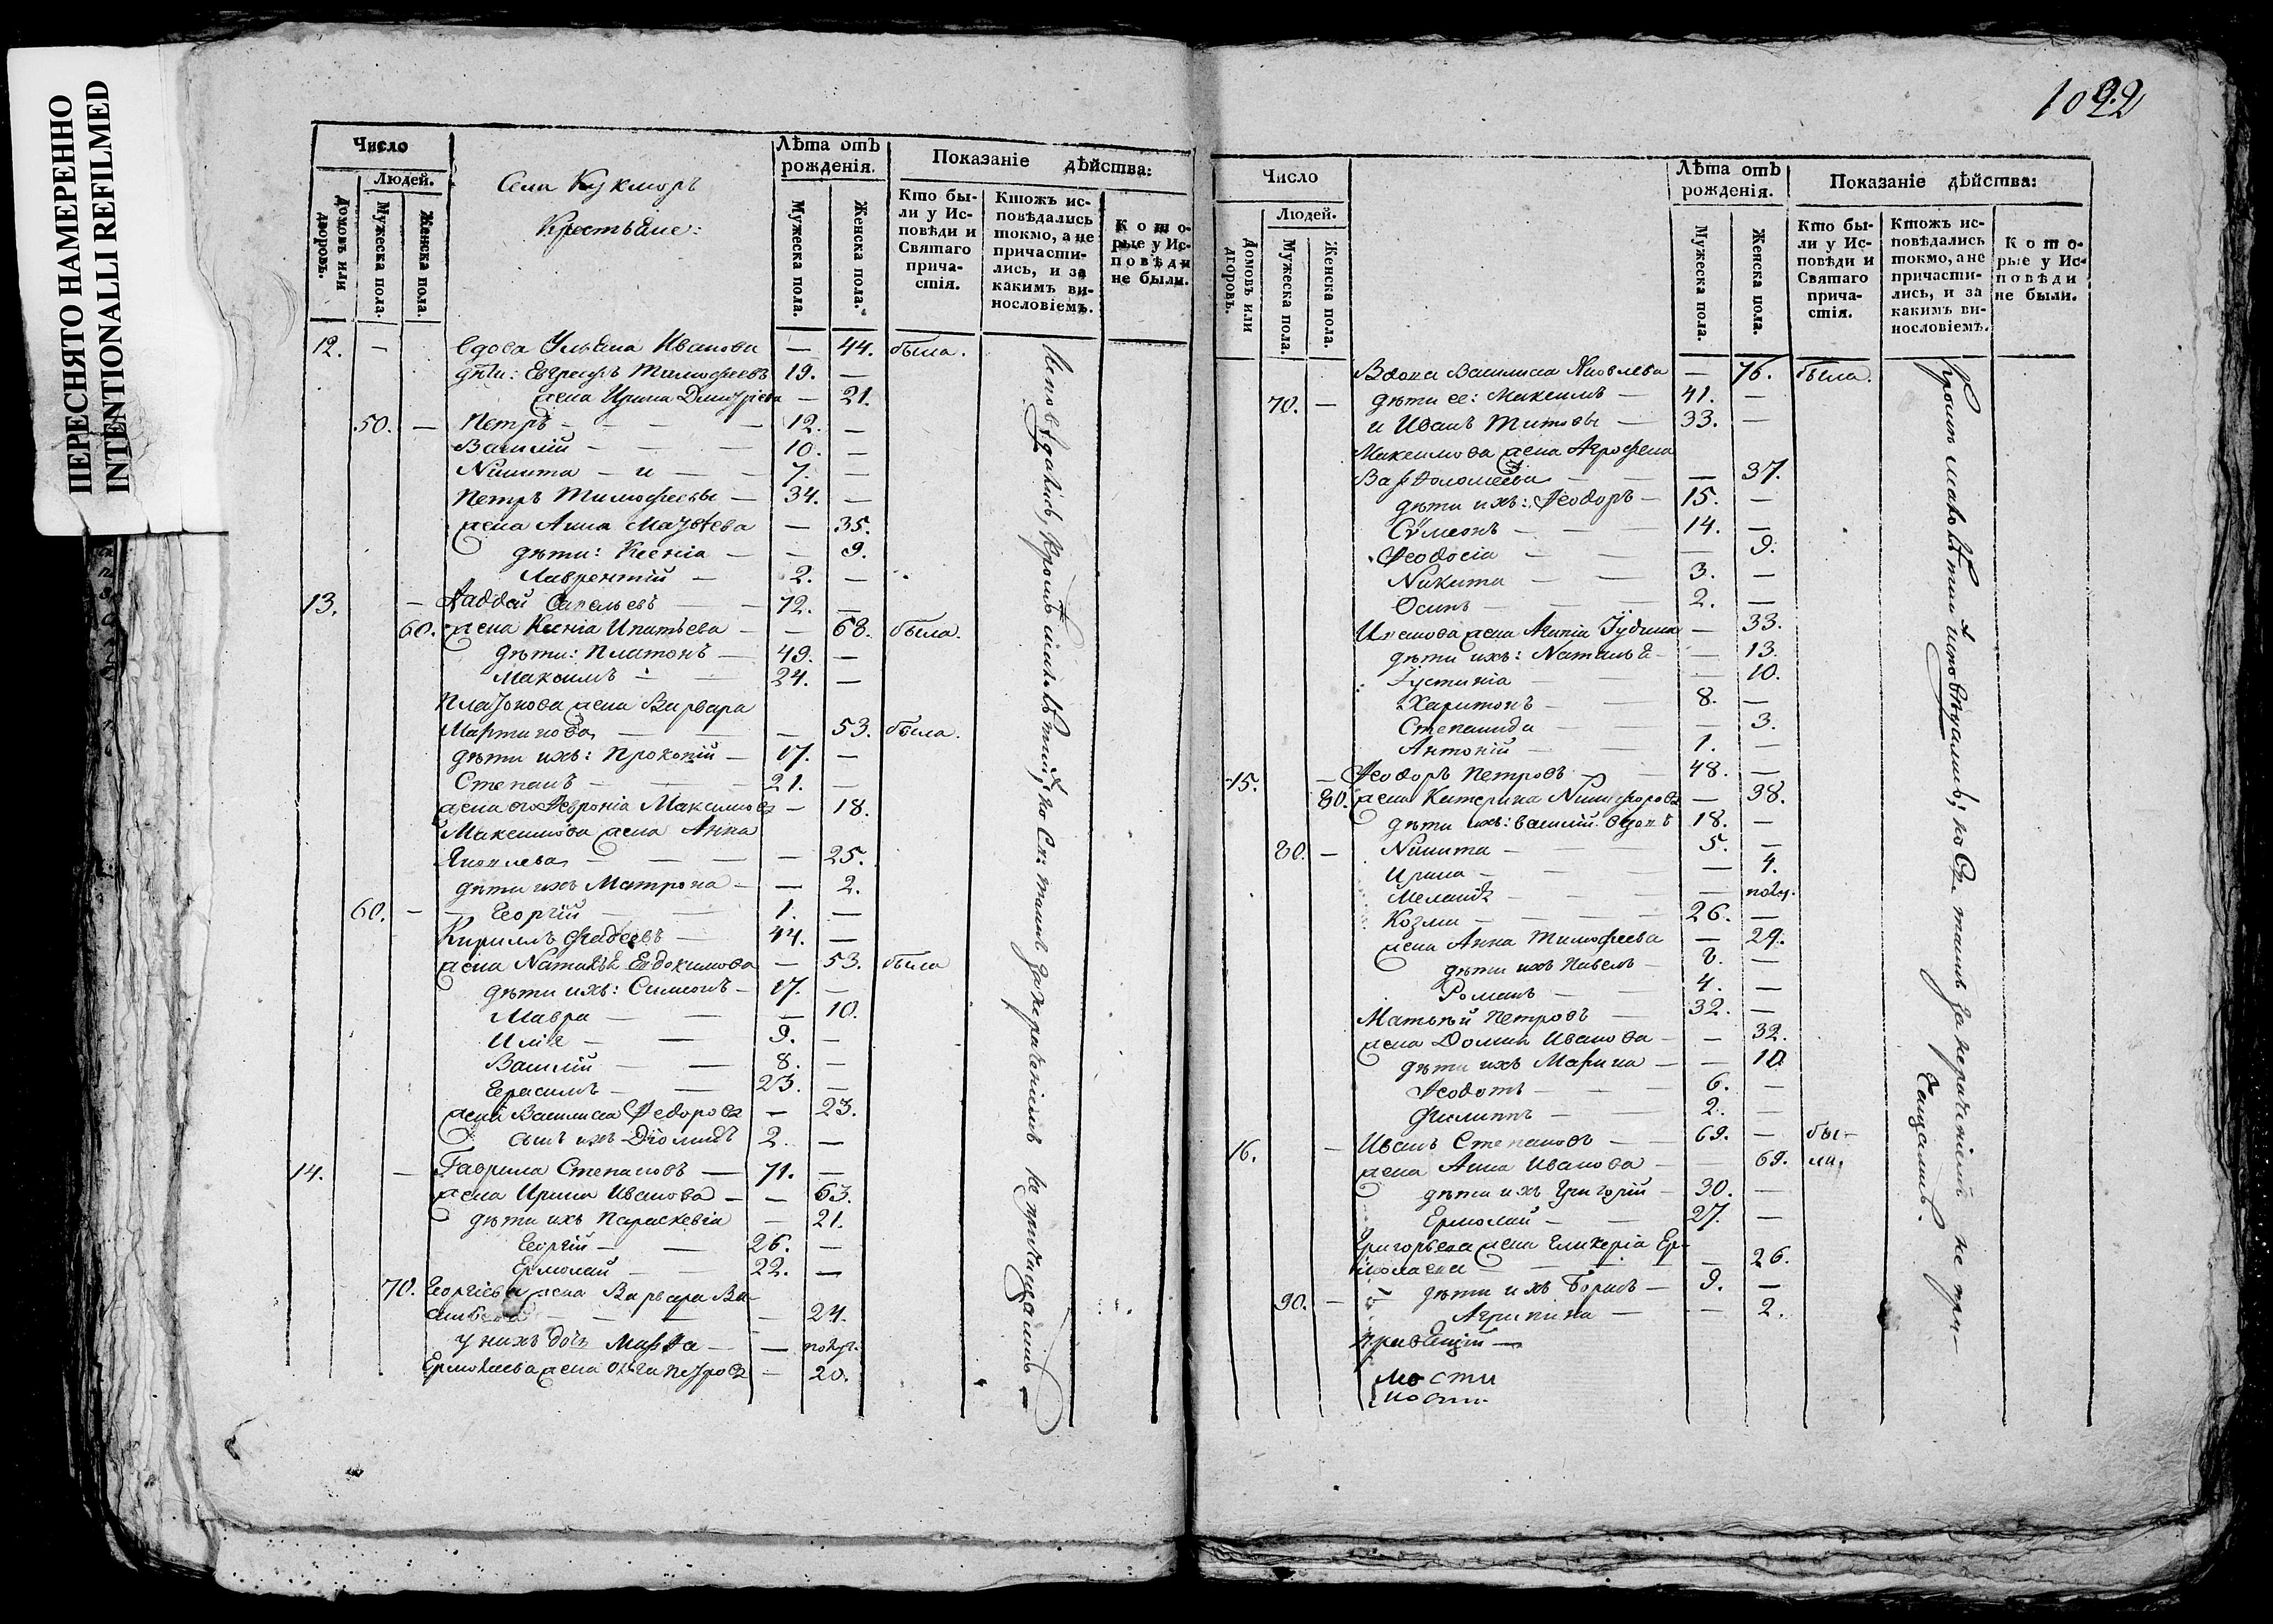 ПЕРЕСНЯТО НАМЕРЕННО
INTENTIONALLI REFILMED
Число
Людей.
Домовъ или дворовъ.
Мужеска пола.
Женска пола.
Села Кукморъ
Крестьяне:
Лѣта отъ рожденія.
Мужеска пола.
Женска пола.
Показаніе дѣйства:
Кто были у Исповѣди и Святаго причастія.
Ктожъ исповѣдались токмо, а не причастились, и за какимъ винословіемъ.
Которые у Исповѣди не были.
12. — вдова Ульяна Иванова — 44. была.
дѣти: Евграфъ Тимофеевъ 19. —
жена Ирина Дмитріева — 21.
50. — Петръ — — — 12. —
Василій — — 10. —
Никита — и — — 7. —
Петръ Тимофеевы — 34. —
жена Анна Матвѣева — 35.
дѣти: Ксенія — — 9.
Лаврентій — 2. —
13. — Фаддей Савельевъ — — 72. —
60. жена Ксенія Ипатьева — — 68. была.
дѣти: Платонъ — 49. —
Максимъ — — 24. —
Платонова жена Варвара
Мартинова — — — 53. была.
дѣти ихъ: Прокопій — 17. —
Степанъ — — — 21. —
жена его Февронія Максимова — 18.
Максимова жена Анна
Яковлева — — — — 25.
дѣти ихъ Матрона — — 2.
60. — — Георгій — — 1. —
Кириллъ Фадеевъ — 44. —
жена Наталья Евдокимова — 53. была
дѣти ихъ: Симеонъ — 17. —
Мавра — — — 10.
Илія — — 9. —
Василій — — 8. —
Герасимъ — — 23. —
жена Василиса Федорова — 23.
сынъ ихъ Діомидъ 2. —
14. — Гаврила Степановъ — 71. —
жена Ирина Иванова — — 63.
дѣти ихъ Параскевія — 21.
Георгій — — 26. —
Ермолай — — 22. —
70. Георгіева жена Варвара Ва-
сильева — — — — 24.
у нихъ дочь Марѳа — — полуг.
Ермолаева жена Ольга Петрова — 20.
Исповѣдались, кромѣ малолѣтнихъ, но Св: таинъ за нераченіемъ не причащались —
1022
Число
Людей.
Домовъ или дворовъ.
Мужеска пола.
Женска пола.
Лѣта отъ рожденія.
Мужеска пола.
Женска пола.
Показаніе дѣйства:
Кто были у Исповѣди и Святаго причастія.
Ктожъ исповѣдались токмо, а не причастились, и за какимъ винословіемъ.
Которые у Исповѣди не были.
Вдова Василиса Яковлева — 76. была.
70. — дѣти ее: Максимъ — 41. —
и Иванъ Титовы — 33. —
Максимова жена Агрофена
Варѳоломеева — — — 37.
дѣти ихъ: Феодоръ — 15. —
Сѵмеонъ — — — 14. —
Феодосія — — — 9.
Никита — — 3. —
Осипъ — — — 2. —
Иванова жена Агапія Іудина — 33.
дѣти ихъ: Наталья — — 13.
Іустинія — — — 10.
Харитонъ — — 8. —
Степанида — — — 3.
Антоній — — 1. —
15. — Феодоръ Петровъ — — 48. —
80. жена Катерина Никифорова — 38.
дѣти ихъ: Василій вдовъ 18. —
80. — Никита — — — 5. —
Ирина — — — — 4.
Меланія — — — полуг.
Козма — — — — 26. —
жена Анна Тимофеева — 29.
дѣти ихъ Павелъ — 8. —
Романъ — — 4. —
Матвѣй Петровъ — 32. —
жена Домна Иванова — — 32.
дѣти ихъ Марина — — 10.
Феодотъ — — 6. —
Филиппъ — — 2. —
16. — Иванъ Степановъ — — 69. — бы-
жена Анна Иванова — — 69. ли.
дѣти ихъ Григорій — 30. —
Ермолай — — 27. —
Григорьева жена Гликерія Ер-
молаева — — — — 26.
дѣти ихъ Борисъ — 9. —
90. — Агрипина — — 2.
мости
ности.
Кромѣ малолѣтнихъ исповѣдались; но Св: таинъ за нераченіемъ не при-
чащались.